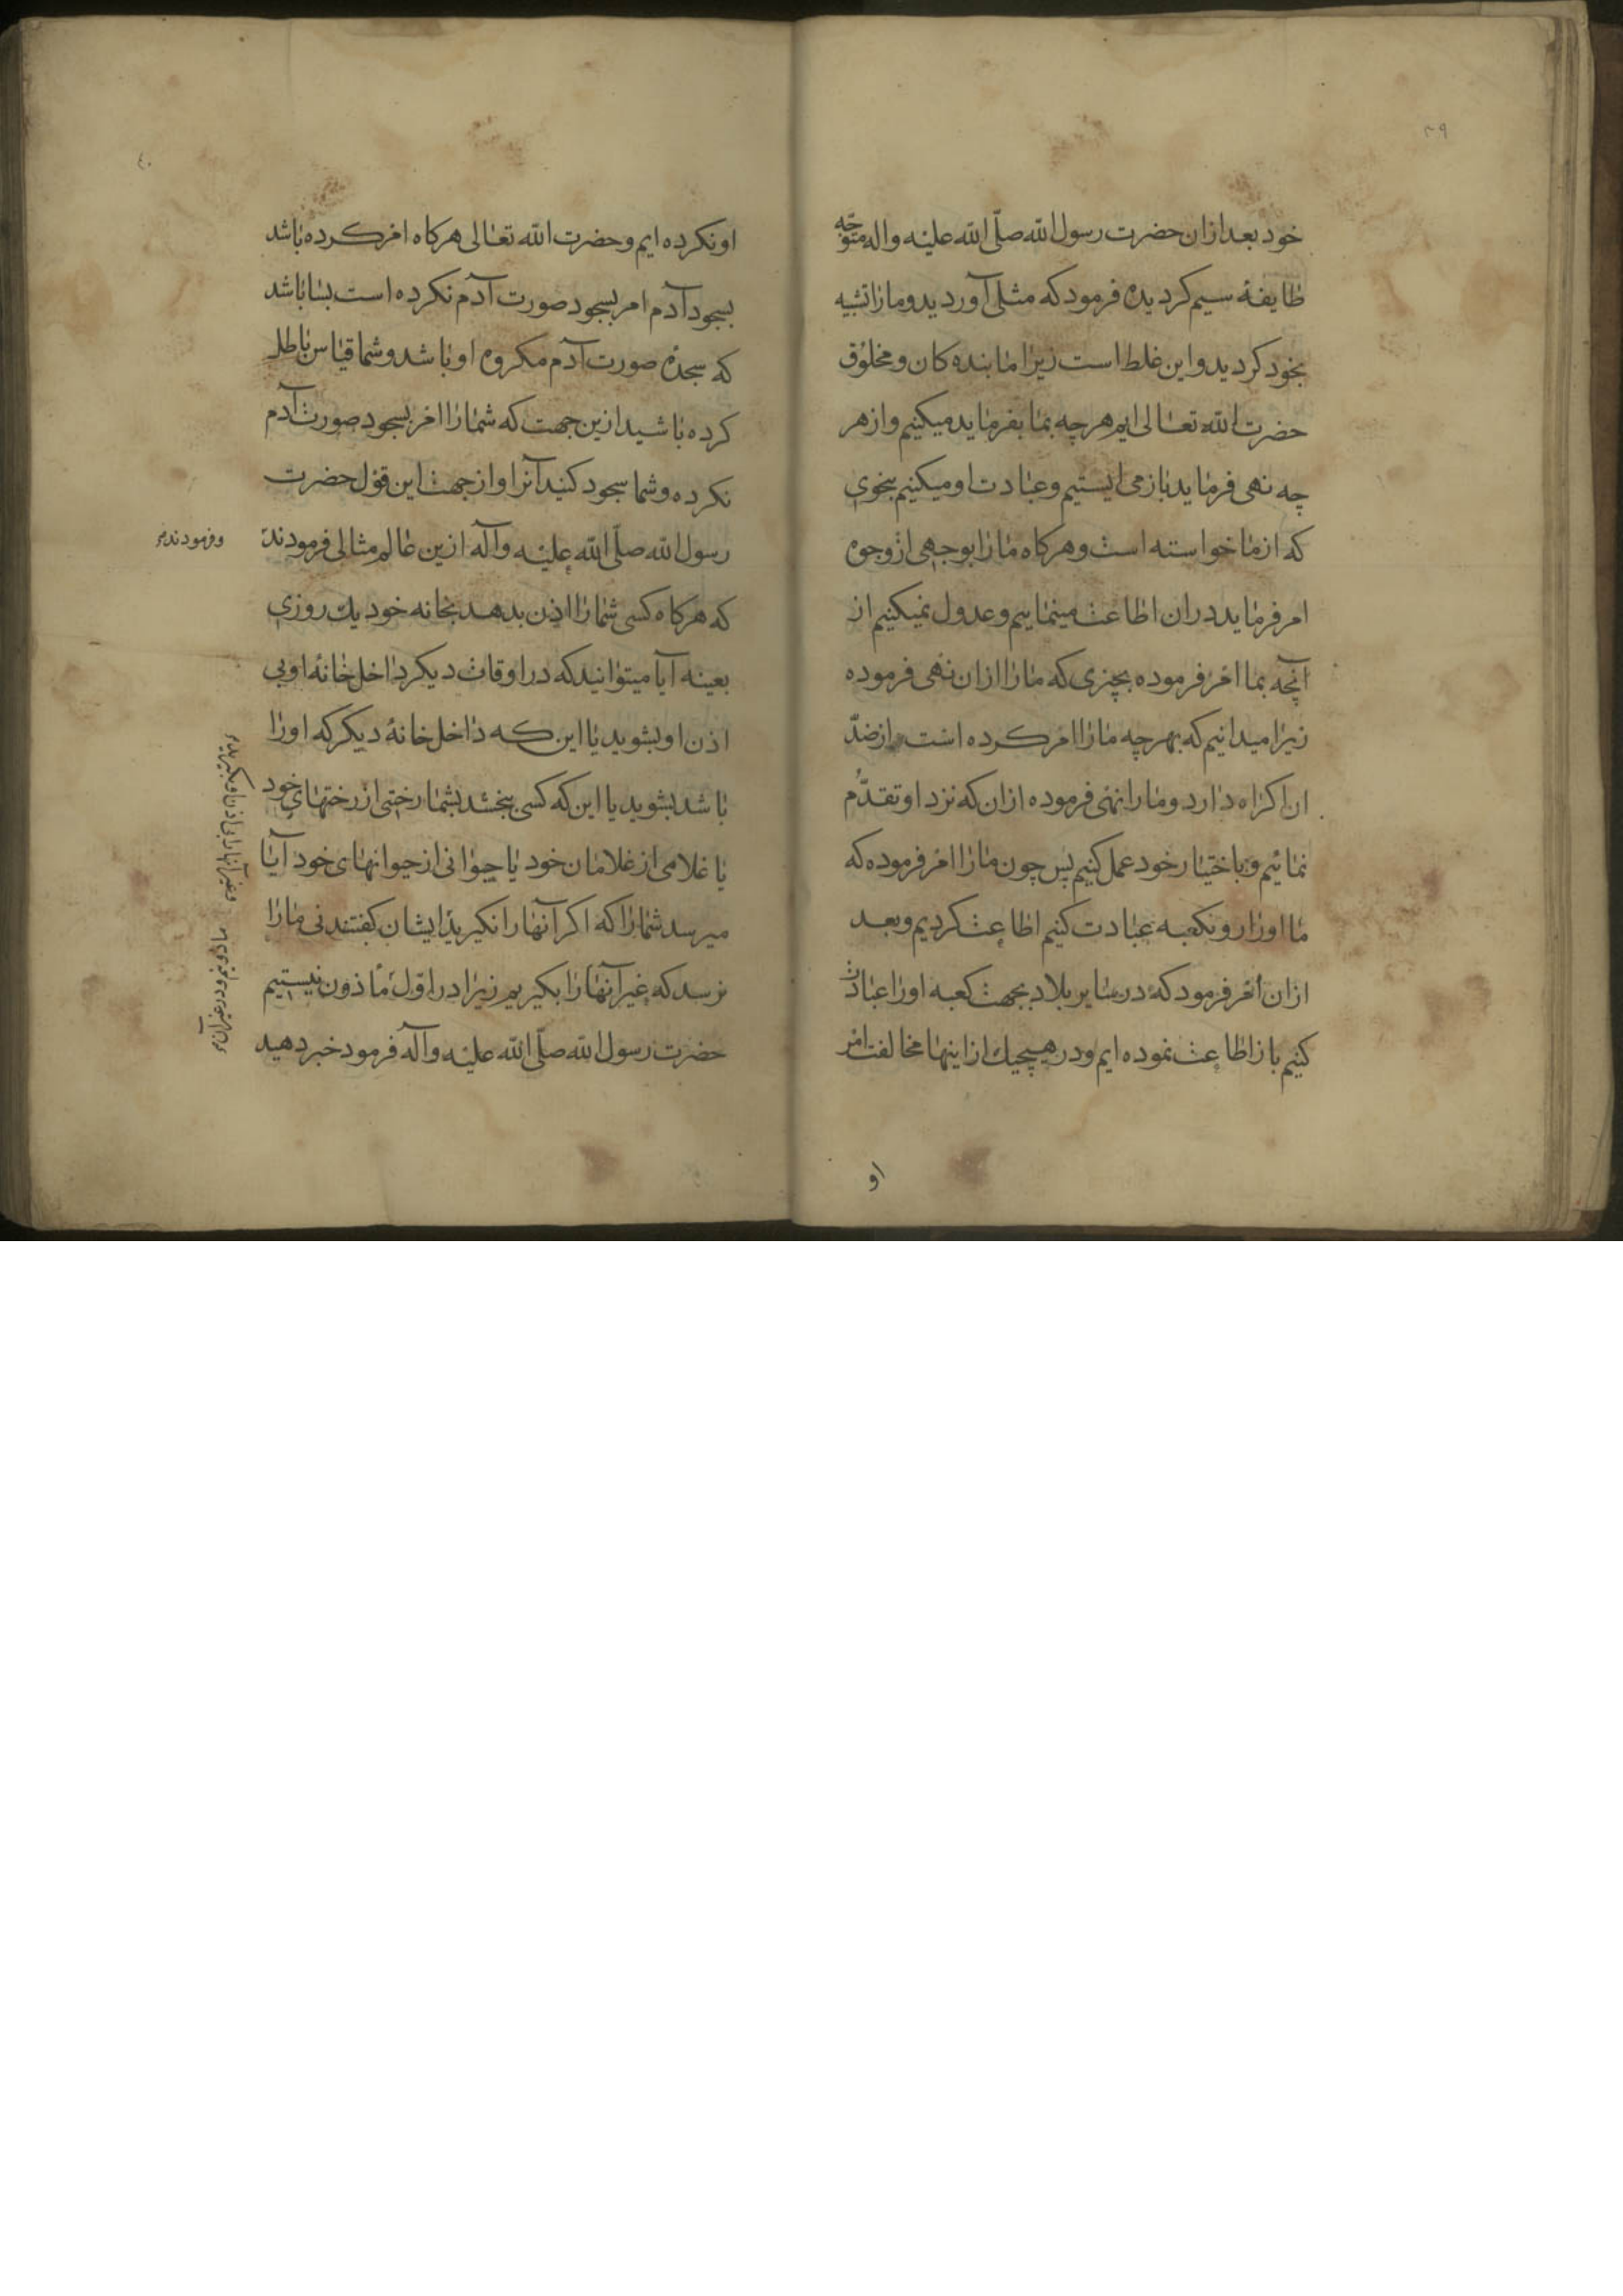 ۳۹
خود بعد ازان حضرت رسول الله صلّی الله علیه واله متوجّه
طایفهٔ سیم کردیده فرمود که مثلی آوردید و مارا تشبیه
بخود کردید و این غلط است زیرا ما بنده کان و مخلوق
حضرت الله تعالی ایم هر چه بما بفرماید میکنیم و از هر
چه نهی فرماید باز می ایستیم و عبادت او میکنیم بنحوی
که از ما خواسته است و هرکاه مارا بوجهی از وجوه
امر فرماید دران اطاعت مینماییم و عدول نمیکنیم از
آنچه بما امر فرموده بچیزی که مارا ازان نهی فرموده
زیرا میدانیم که بهرچه مارا امر کرده است از ضدّ
ان اکراه دارد و مارا نهی فرموده ازان که نزد او تقدّم
نمائیم و باختیار خود عمل کنیم پس چون مارا امر فرموده که
ما اورا رو بکعبه عبادت کنیم اطاعت کردیم و بعد
ازان امر فرمود که در سایر بلاد بجهت کعبه اورا عبادت
کنیم باز اطاعت نموده ایم و در هیچیك ازاینها مخالفت امر
او
۴۰
او نکرده ایم و حضرت الله تعالی هرکاه امر کرده باشد
بسجود آدم امر بسجود صورت آدم نکرده است بسا باشد
که سجدهٔ صورت آدم مکروه او باشد و شما قیاس باطل
کرده باشید ازین جهت که شمارا امر بسجود صورت آدم
نکرده و شما سجود کنید آنرا و از جهت این قول حضرت
رسول الله صلّی الله علیه وآله ازین عالم مثالی فرمودند
و فرمودند
که هرکاه کسی شمارا اذن بدهد بخانه خود یك روزی
بعینه آیا میتوانید که در اوقات دیکر داخل خانهٔ او بی
اذن او بشوید یا این که داخل خانهٔ دیکر که اورا
باشد بشوید یا این که کسی ببخشد بشما رختی از رختهای خود
یا غلامی از غلامان خود یا حیوانی از حیوانهای خود آیا
میرسد شمارا که اکر آنها را نکیرید ایشان کفتند نی مارا
نرسد که غیر آنهارا بکیریم زیرا در اوّل ماذون نیستیم
حضرت رسول الله صلّی الله علیه وآله فرمود خبر دهید